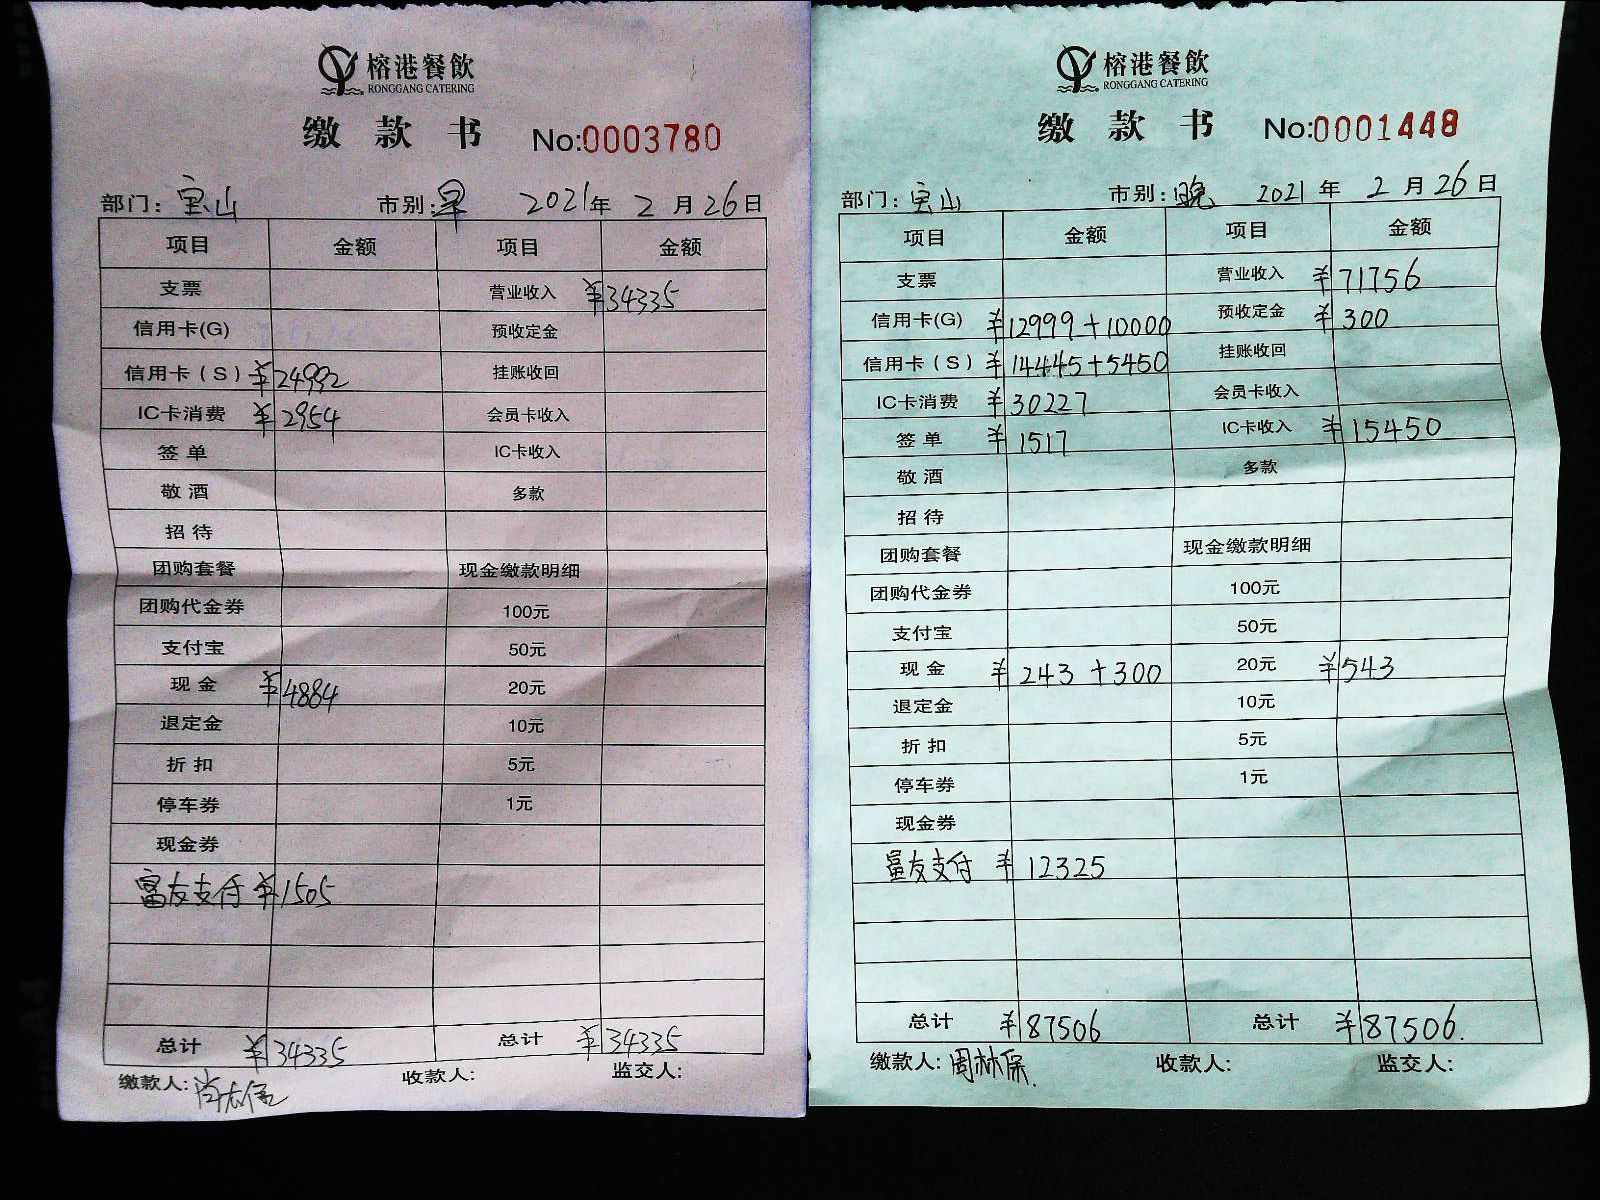 榕港餐飲
RONGGANG CATERING
缴款书 No:0003780
部门:宝山 市别:早 2021年2月26日
项目 金额 项目 金额
支票 营业收入 ¥34335
信用卡(G) 预收定金
信用卡(S) ¥24992 挂账收回
IC卡消费 ¥2954 会员卡收入
签单 IC卡收入
敬酒 多款
招待
团购套餐 现金缴款明细
团购代金券 100元
支付宝 50元
现金 ¥4884 20元
退定金 10元
折扣 5元
停车券 1元
现金券
富友支付 ¥1505
总计 ¥34335 总计 ¥34335
缴款人: 收款人: 监交人:
榕港餐飲
RONGGANG CATERING
缴款书 No:0001448
部门:宝山 市别:晚 2021年2月26日
项目 金额 项目 金额
支票 营业收入 ¥71756
信用卡(G) ¥12999+10000 预收定金 ¥300
信用卡(S) ¥14445+5450 挂账收回
IC卡消费 ¥30227 会员卡收入
签单 ¥1517 IC卡收入 ¥15450
敬酒 多款
招待
团购套餐 现金缴款明细
团购代金券 100元
支付宝 50元
现金 ¥243+300 20元 ¥543
退定金 10元
折扣 5元
停车券 1元
现金券
富友支付 ¥12325
总计 ¥87506 总计 ¥87506.
缴款人:周林保. 收款人: 监交人: